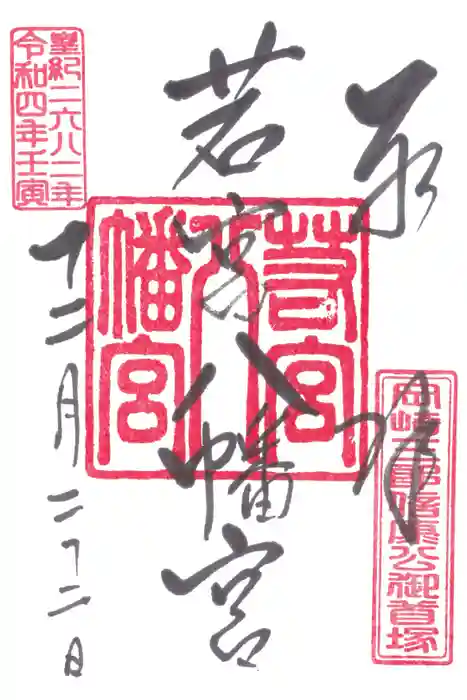 奉拝
岡崎三郎信康公御首塚
若宮八幡宮
若宮八幡宮
皇紀二六八二年
令和四年壬寅
十二月二十二日